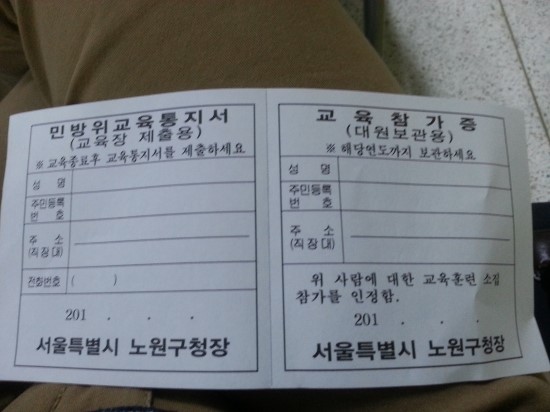 민방위교육통지서
(교육장 제출용)
※ 교육종료후 교육통지서를 제출하세요
성 명
주민등록
번 호
주 소
(직장대)
전화번호 ( )
201 . . .
서울특별시 노원구청장
교육참가증
(대원보관용)
※ 해당연도까지 보관하세요
성 명
주민등록
번 호
주 소
(직장대)
위 사람에 대한 교육훈련 소집
참가를 인정함.
201 . . .
서울특별시 노원구청장